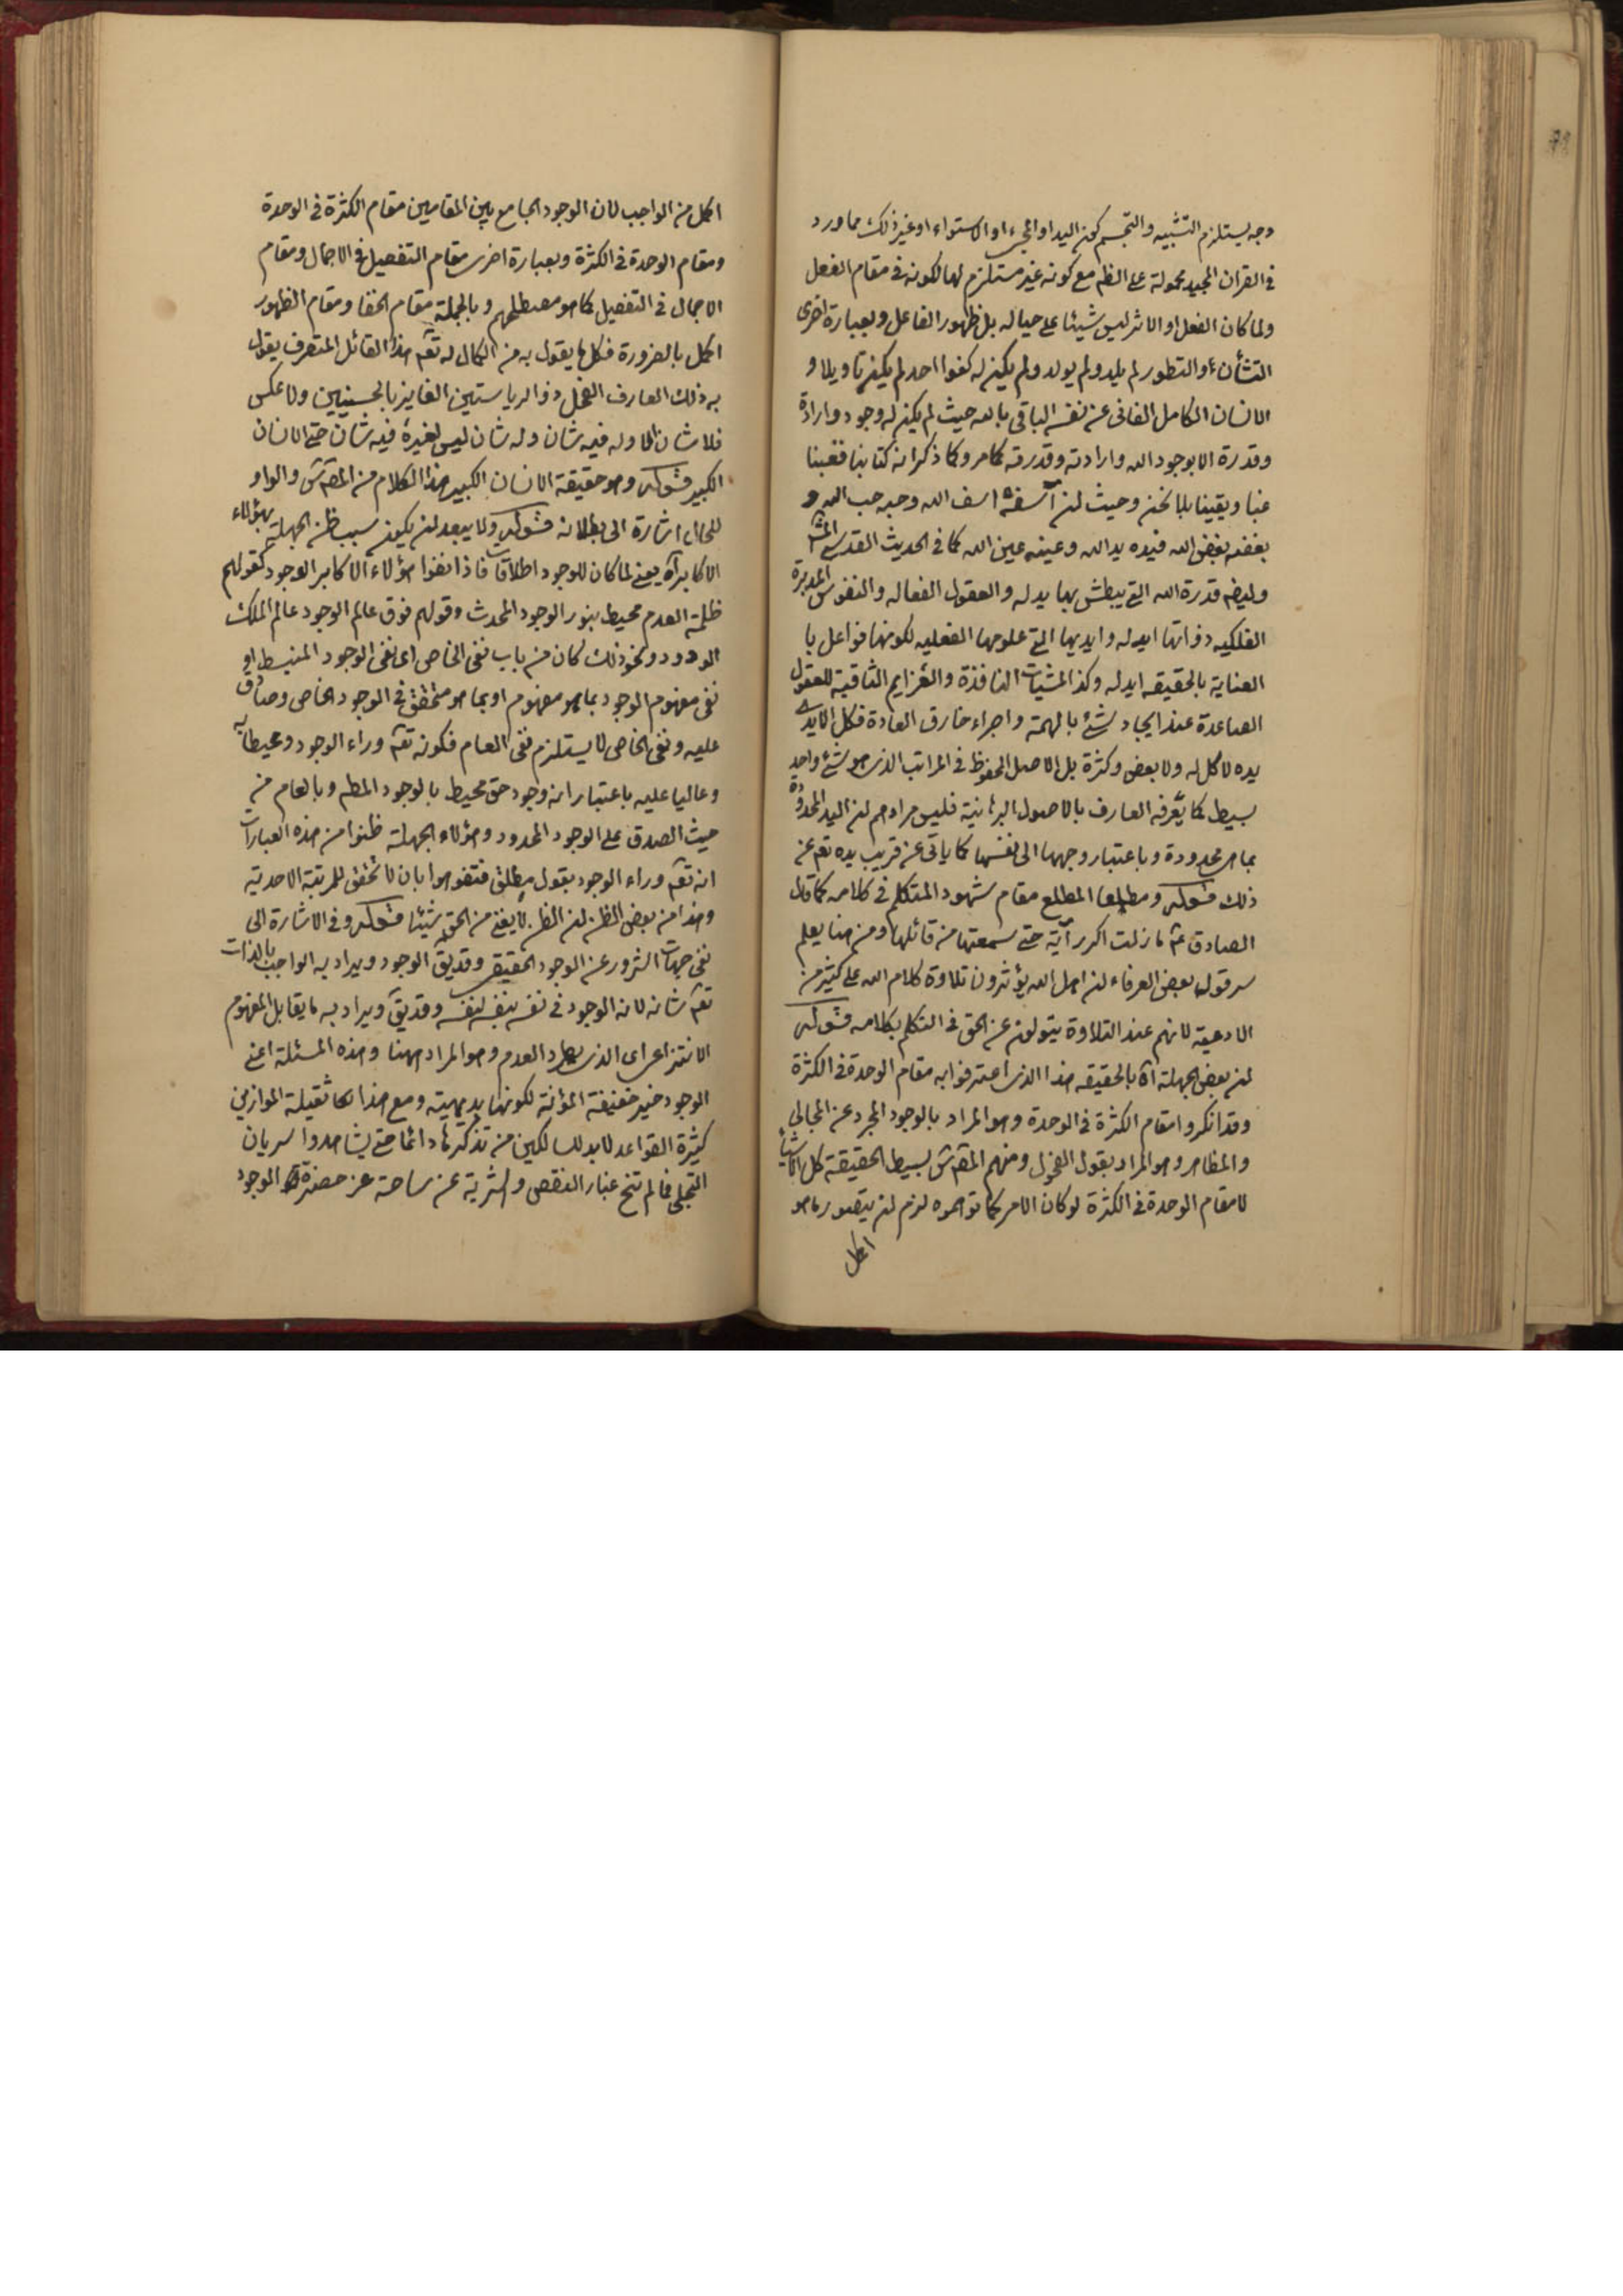 وجه يستلزم التشبيه والتجسم كون اليد او المجيء او الاستواء او غير ذلك مما ورد
فى القران المجيد محمولة على الظم مع كونه غير مستلزم لها لكونه فى مقام الفعل
ولما كان الفعل او الاثر ليس شيئا على حياله بل ظهور الفاعل وبعبارة اخرى
التشأن او التطور لم يلد ولم يولد ولم يكن له كفوا احد لم يكن تاويلا و
الانسان الكامل الفانى عن نفسه الباقى بالله حيث لم يكن له وجود وارادة
وقدرة الا بوجود الله وارادته وقدرته كما مر وكما ذكرانه كنا بنا فغبنا
عنا وبقينا بلا نحن وحيث ان آسفه اسف الله وحبه حب الله و
بغضه بغض الله فيده يد الله وعينه عين الله كما فى الحديث القدسى المشه
وايضه قدرة الله التى يبطش بها يد له والعقول الفعاله والنفوس المدبرة
الفلكيه ذواتها ايد له وايديها التى علومها الفعليه لكونها فواعل با
العناية بالحقيقه ايد له وكذا المشيات النافذة والعزايم الثاقبة للعقول
الصاعدة عند ايجاد شئ بالهمة واجراء خارق العادة فكل الايدى
يده لا كل له ولا بعض وكثرة بل الاصل المحفوظ فى المراتب الذى هو شئ واحد
بسيط كما يعرفه العارف بالاصول البرهانية فليس مرادهم ان اليد المحدودة
بما هى محدودة وباعتبار وجهها الى نفسها كما ياتى عن قريب يده تعم عن
ذلك قوله ومطلعا المطلع مقام شهود المتكلم فى كلامه كما قال
الصادق ع ما زلت اكرر آية حتى سمعتها من قائلها ومن هنا يعلم
سر قول بعض العرفاء ان اهل الله يؤثرون تلاوة كلام الله على كثير من
الادعية لانهم عند التلاوة يتولون عن الحق فى التكلم بكلامه قوله
ان بعض الجهلة اه بالحقيقه هذا الذى اعترفوا به مقام الوحدة فى الكثرة
وقد انكروا مقام الكثرة فى الوحدة وهو المراد بالوجود المجرد عن المجالى
والمظاهر وهو المراد بقول الفحول ومنهم المصم س بسيط الحقيقة كل الاشياء
لا مقام الوحدة فى الكثرة لو كان الامر كما توهموه لزم ان يتصور ما هو
اكمل
اكمل من الواجب لان الوجود الجامع بين المقامين مقام الكثرة فى الوحدة
ومقام الوحدة فى الكثرة وبعبارة اخرى مقام التفصيل فى الاجمال ومقام
الاجمال فى التفصيل كما هو مصطلحهم وبالجملة مقام الخفا ومقام الظهور
اكمل بالضرورة فكل ما يقول به من الكمال له تعم هذا القائل المتعرف يقول
به ذلك العارف الفحل ذوالرياستين الفايز بالحسنيين ولا عكس
فلا شان الا وله فيه شان وله شان ليس لغيره فيه شان حتى الانسان
الكبير قوله وهو حقيقة الانسان الكبير هذا الكلام من المصم س والواو
للحال اشارة الى بطلانه قوله ولا يبعد ان يكون سبب ظن الجهلة بهؤلاء
الاكابر اه يعنى لما كان للوجود اطلاقات فاذا نفوا هؤلاء الاكابر الوجود كقولهم
ظلمة العدم محيط بنور الوجود المحدث وقولهم فوق عالم الوجود عالم الملك
الودود ونحو ذلك كان من باب نفى الخاص اى نفى الوجود المنبسط او
نفى مفهوم الوجود بما هو مفهوم او بما هو متحقق فى الوجود الخاص وصادق
عليه ونفى الخاص لا يستلزم نفى العام فكونه تعم وراء الوجود ومحيطا به
وعاليا عليه باعتبار انه وجود حق محيط بالوجود المطم وبالعام من
حيث الصدق على الوجود المحدود وهؤلاء الجهلة ظنوا من هذه العبارات
انه تعم وراء الوجود بقول مطلق فتفوهوا بان لا تحقق للمرتبة الاحدية
وهذا من بعض الظن ان الظن لا يغنى من الحق شيئا قوله وفى الاشارة الى
نفى جهات الشرور عن الوجود الحقيقى وقد يق الوجود ويراد به الواجب بالذات
تعم شانه لانه الوجود فى نفسه بنفسه لنفسه وقد يق ويراد به ما يقابل المفهوم
الانتزاعى اى الذى يطرد العدم وهو المراد ههنا وهذه المسئلة اعنى
الوجود خير خفيفة المؤنة لكونها بديهية ومع هذا لها ثقيلة الموازين
كثيرة القواعد لابد للسالكين من تذكرها دائما حتى يشاهدوا سريان
التجلى فما لم تنح غبار النقص والشرية عن ساحة عز حضرة الوجود